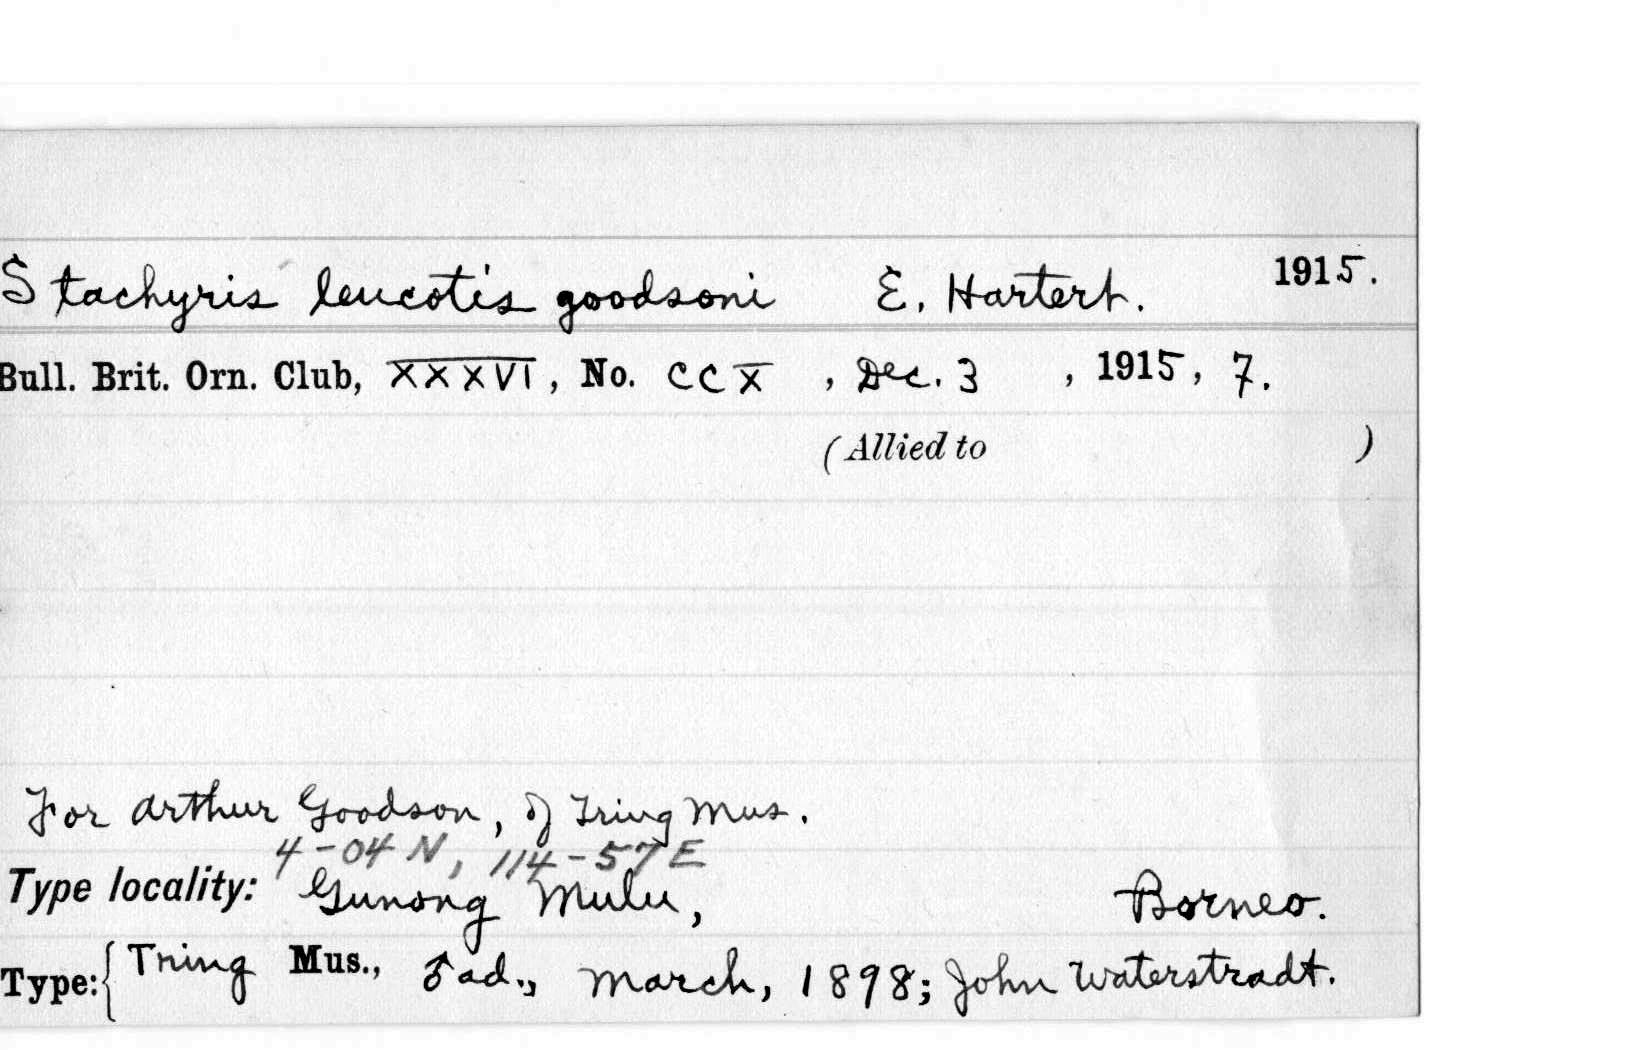 Stachyris leucotis goodsoni E. Hartert. 1915.
Bull. Brit. Orn. Club, XXXVI, No. CCX, Dec. 3, 1915, 7.
(Allied to )
For Arthur Goodson, of Tring Mus.
4-04 N, 114-57 E
Type locality: Gunong Mulu, Borneo.
Type: { Tring Mus., ♂ ad., March, 1898; John Waterstradt.